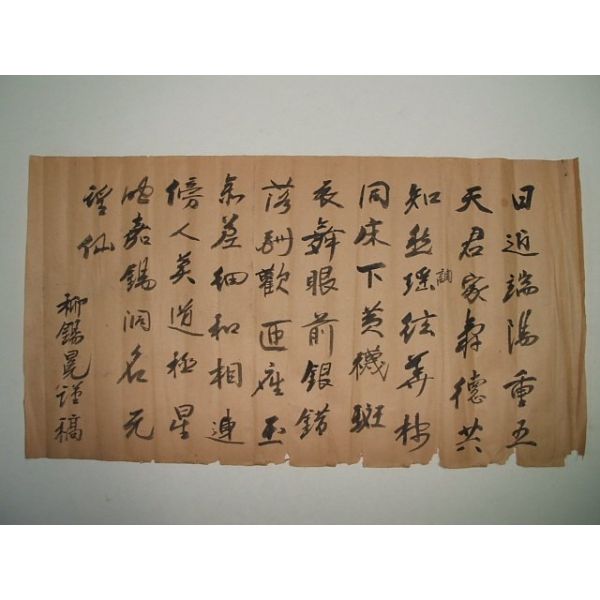 日近端陽重五
天君家壽德共
知然瑤絃華棣
調
同床下黃襪斑
衣舞眼前銀錯
落酬歡匝座玉
參差細和相連
傍人莫道極星
晦嘉錫洞名元
望仙
柳錫冕謹稿